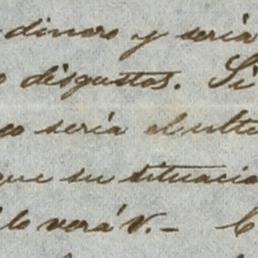 dinero y seria
disgustos. Si
seria el
que su situacio
lo verá V. –